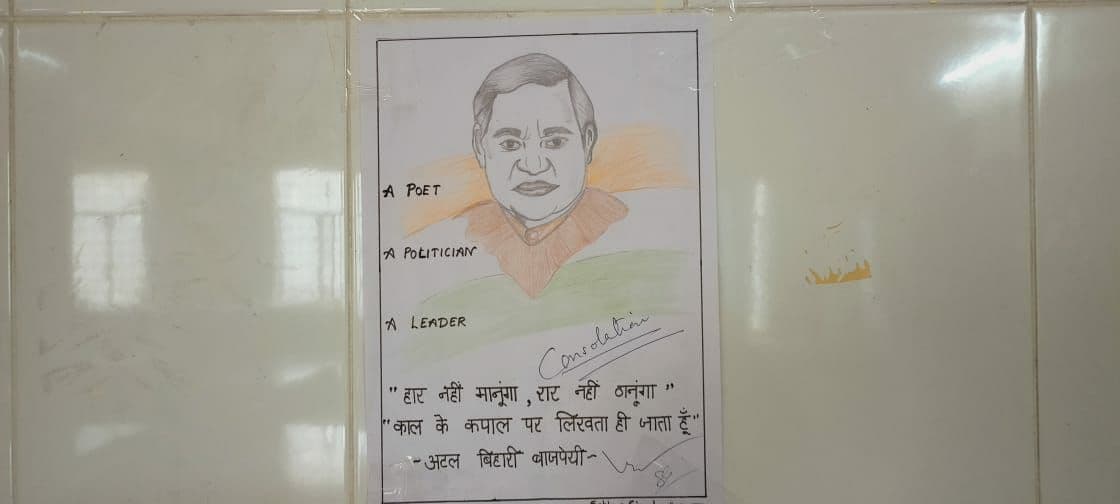 A POET
A POLITICIAN
A LEADER
Consolation
" हार नहीं मानूंगा , रार नहीं ठानूंगा "
"काल के कपाल पर लिखता ही जाता हूँ"
- अटल बिहारी वाजपेयी -